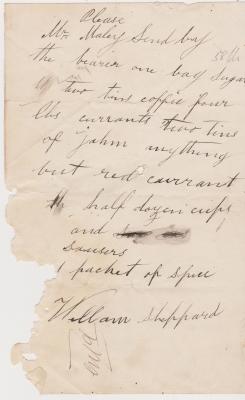 Please
Mr Maley Send by
the bearer one bag Sugar
two tins coffie four
lbs currants two tins
of jahm anything
but red currant
half dozen cups
and
sausers
1 packet of spice
William Sheppard